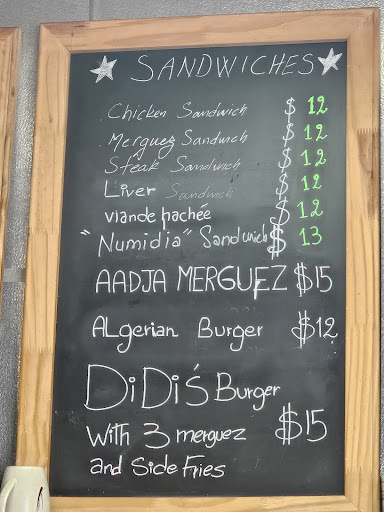 SANDWICHES
Chicken Sandwich $ 12
Merguez Sandwich $ 12
Steak Sandwich $ 12
Liver Sandwich $ 12
viande hachée $ 12
"Numidia" Sandwich $ 13
AADJA MERGUEZ $15
ALgerian Burger $12
DiDi's Burger
With 3 merguez $15
and Side Fries